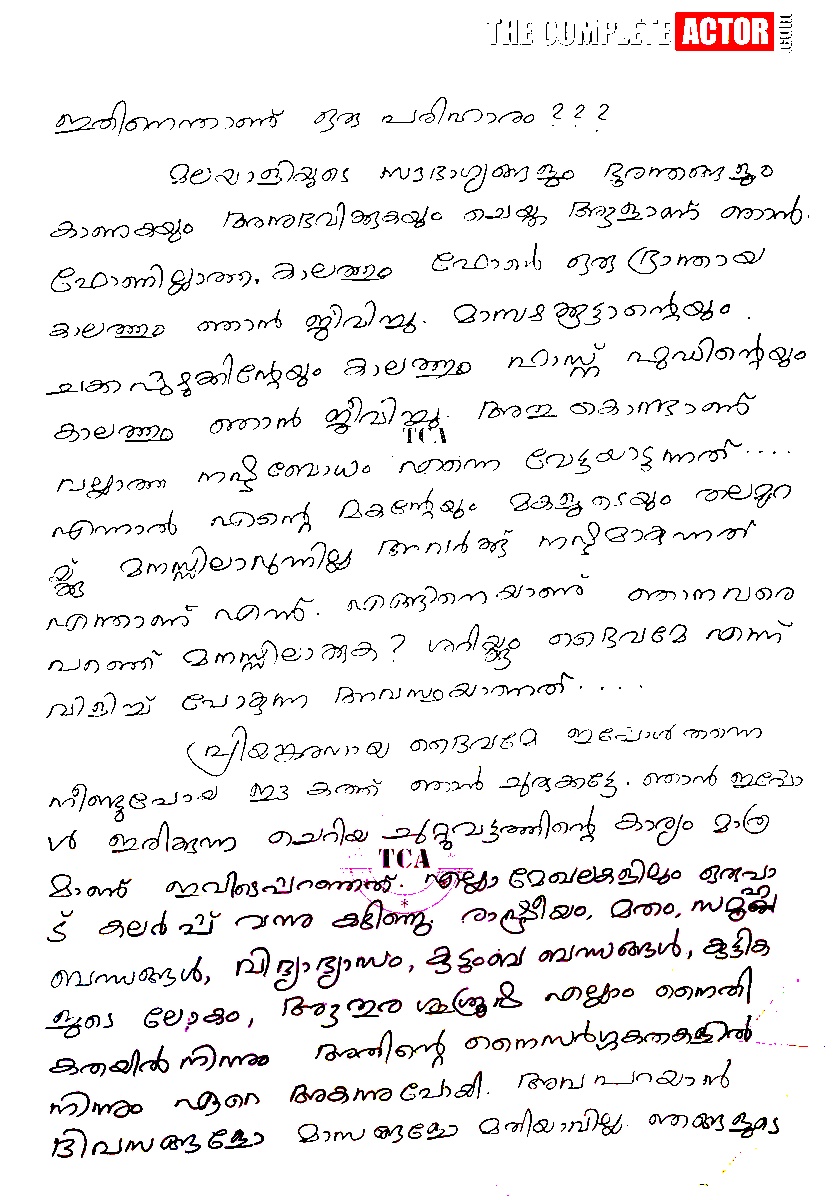 THE COMPLETE ACTOR
ഇതിനെന്താണ് ഒരു പരിഹാരം ???
മലയാളിയുടെ സൗഭാഗ്യങ്ങളും ദുരന്തങ്ങളും
കാണുകയും അനുഭവിക്കുകയും ചെയ്ത ആളാണ് ഞാൻ.
ഫോണില്ലാത്ത കാലത്തും ഫോൺ ഒരു ഭ്രാന്തായ
കാലത്തും ഞാൻ ജീവിച്ചു. മാമ്പഴക്കൂട്ടാന്റെയും
ചക്ക പുഴുക്കിന്റേയും കാലത്തും ഫാസ്റ്റ് ഫുഡിന്റെയും
കാലത്തും ഞാൻ ജീവിച്ചു. അതു കൊണ്ടാണ്
TCA
വല്ലാത്ത നഷ്ടബോധം എന്നെ വേട്ടയാടുന്നത്....
എന്നാൽ എന്റെ മകന്റേയും മകളുടെയും തലമുറ
യ്ക്കു മനസ്സിലാവുന്നില്ല അവർക്ക് നഷ്ടമാകുന്നത്
എന്താണ് എന്ന്. എങ്ങിനെയാണ് ഞാനവരെ
പറഞ്ഞ് മനസ്സിലാക്കുക? ശരിയ്ക്കും ദൈവമേ എന്ന്
വിളിച്ച് പോകുന്ന അവസ്ഥയാണത്....
പ്രിയങ്കരനായ ദൈവമേ ഇപ്പോൾ തന്നെ
നീണ്ടുപോയ ഈ കത്ത് ഞാൻ ചുരുക്കട്ടേ. ഞാൻ ഇപ്പോ
ൾ ഇരിക്കുന്ന ചെറിയ ചുറ്റുവട്ടത്തിന്റെ കാര്യം മാത്ര
TCA
മാണ് ഇവിടെപറഞ്ഞത്. എല്ലാ മേഖലകളിലും ഒരുപാ
ട് കലർപ്പ് വന്നു കഴിഞ്ഞു. രാഷ്ട്രീയം, മതം, സമൂഹ
ബന്ധങ്ങൾ, വിദ്യാഭ്യാസം, കുടുംബ ബന്ധങ്ങൾ, കുട്ടിക
ളുടെ ലോകം, ആതുര ശുശ്രൂഷ എല്ലാം നൈതി
കതയിൽ നിന്നും അതിന്റെ നൈസർഗ്ഗകതകളിൽ
നിന്നും ഏറെ അകന്നുപോയി. അവ പറയാൻ
ദിവസങ്ങളോ മാസങ്ങളോ മതിയാവില്ല. ഞങ്ങളുടെ